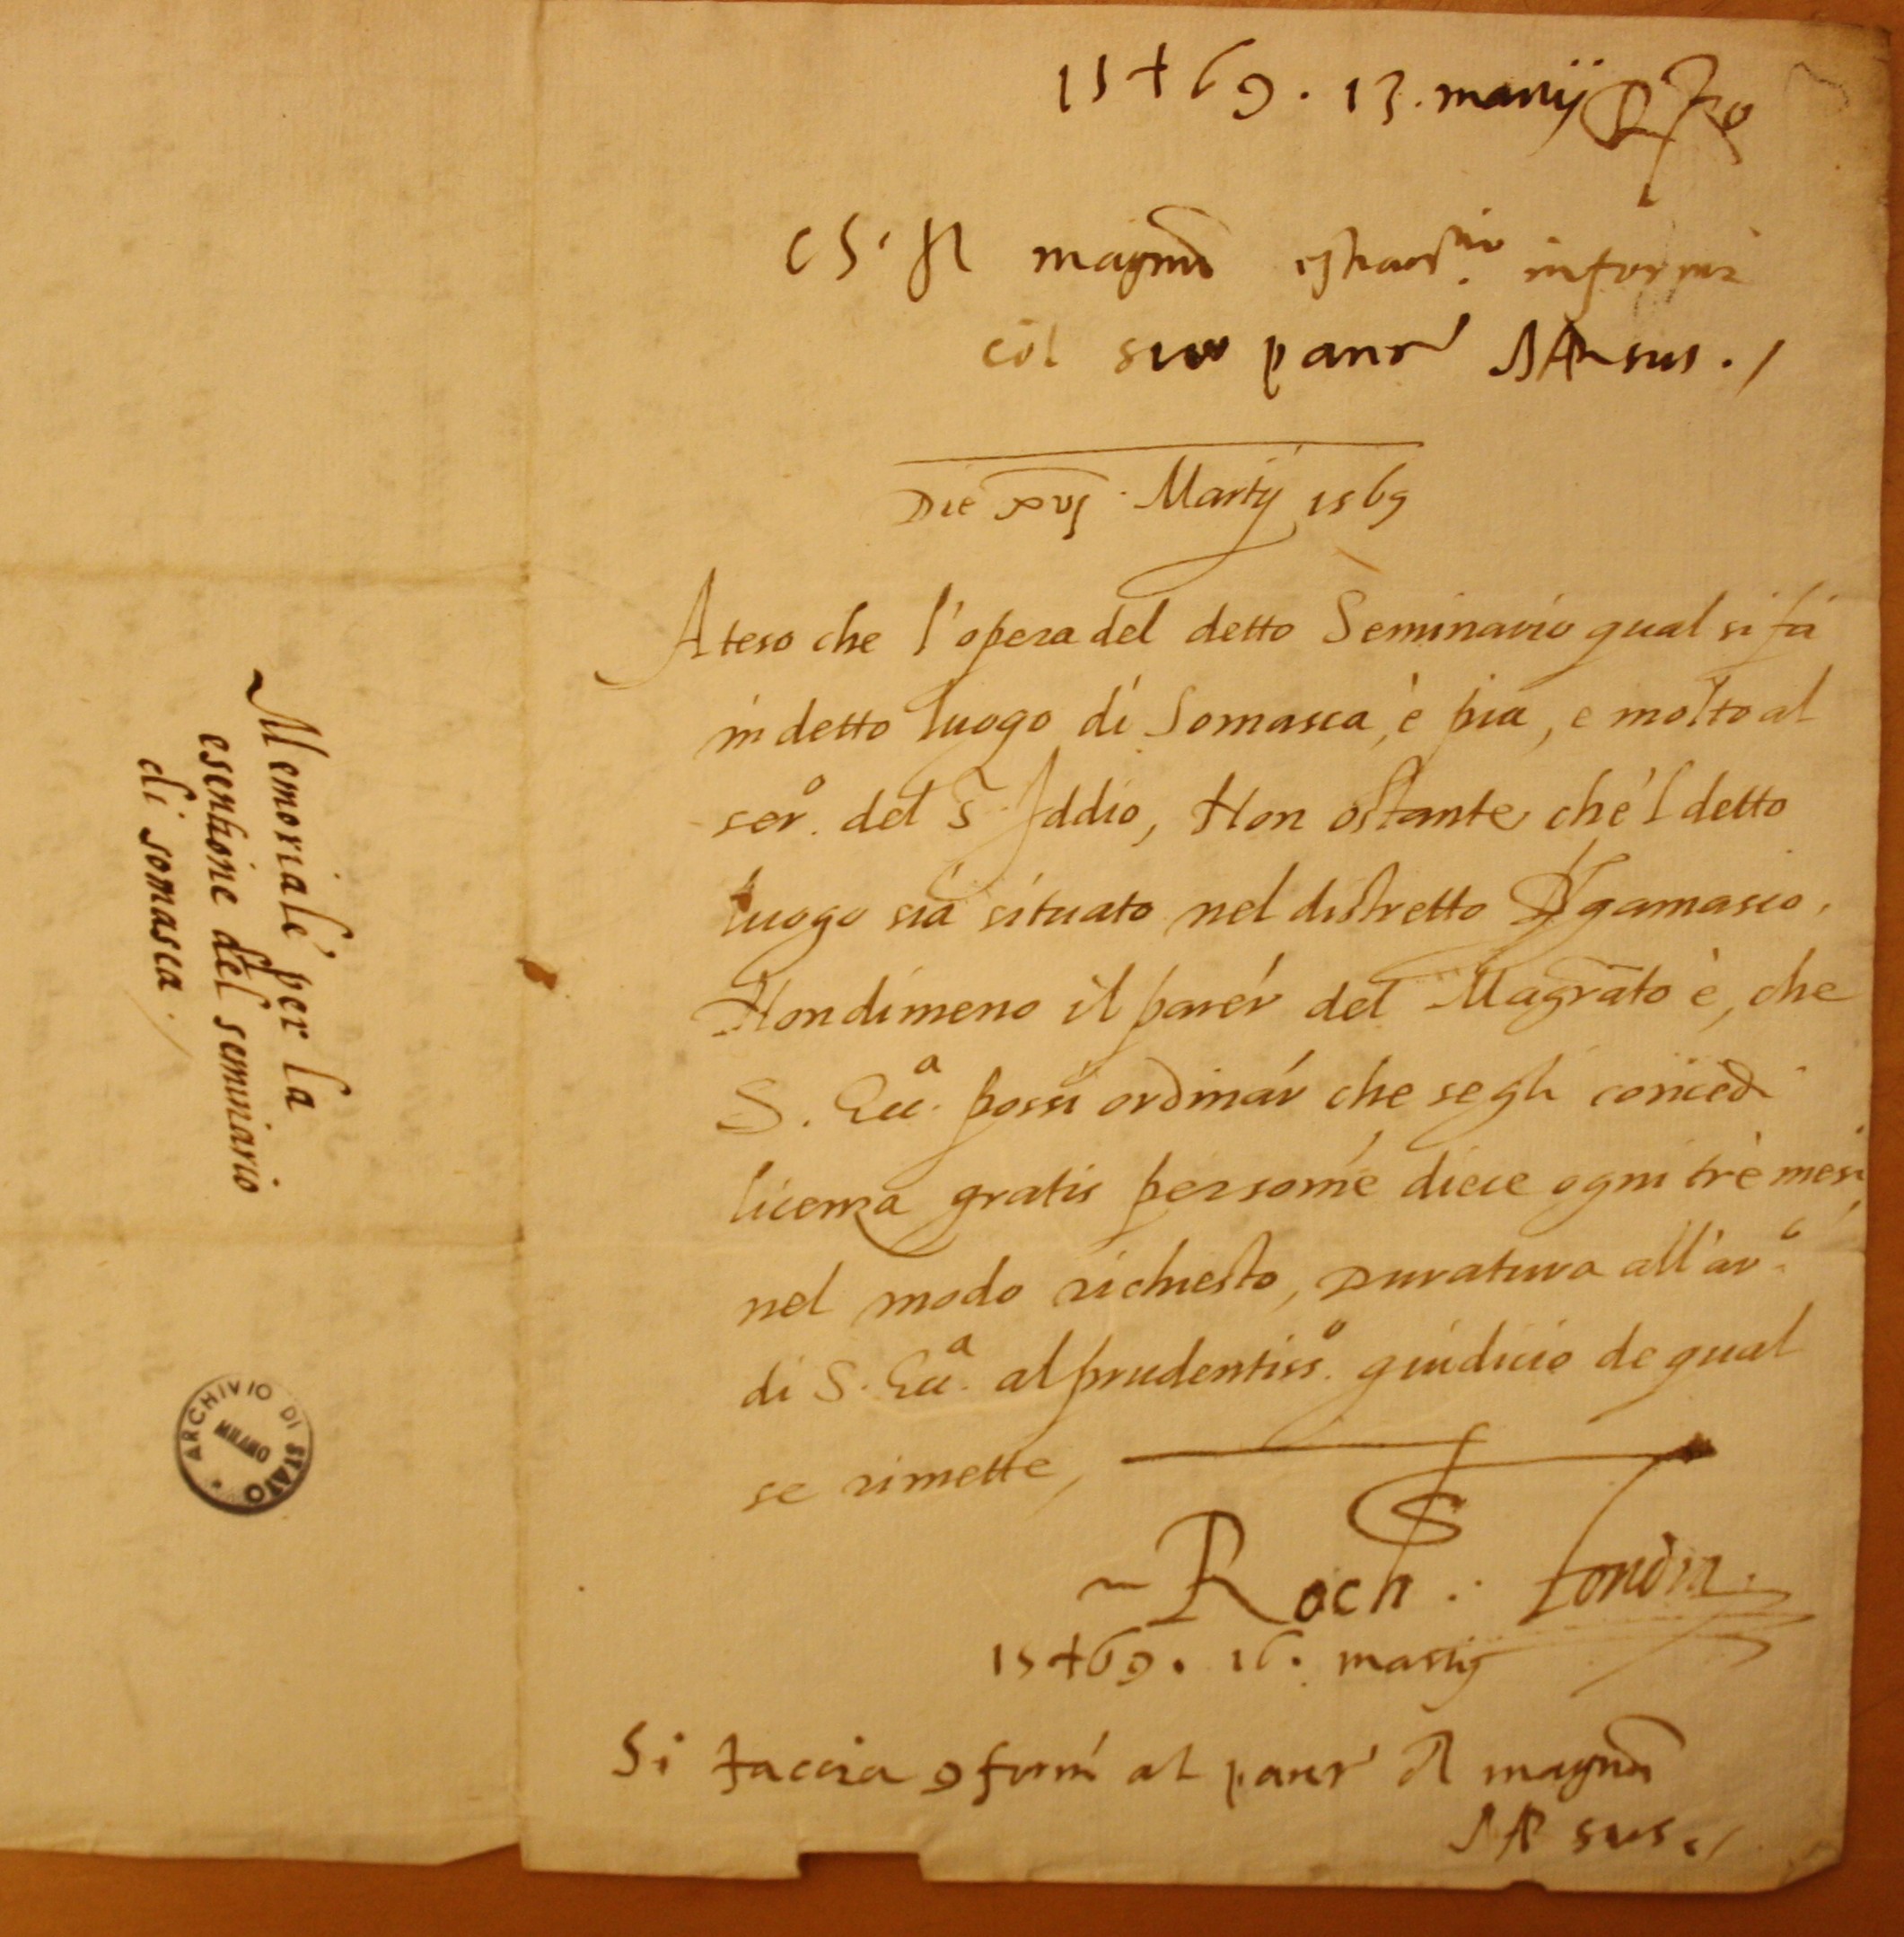 15+69. 13. martij
magto informi
col suo parer sus ./
Die xvj Martij 1569
Ateso che l'opera del detto Seminario qual si fa
in detto luogo di Somasca, è pia, e molto al
ser.º del S. Iddio, Non ostante che'l detto
luogo sia situato nel distretto
Nondimeno il parer del Magrato è, che
S. Ecc.ª possi ordinar che se gli concedi
licenza gratis per some diece ogni trè mesi
nel modo richiesto, Duratura all'ar.º
di S. Ecc.ª al prudentiss.º giudicio de qual
se rimette,
Roch.
15+69. 16. martij
Si faccia al parer magto
sus ./
Memoriale per la
esentione del seminario
di somasca.
ARCHIVIO DI STATO
MILANO